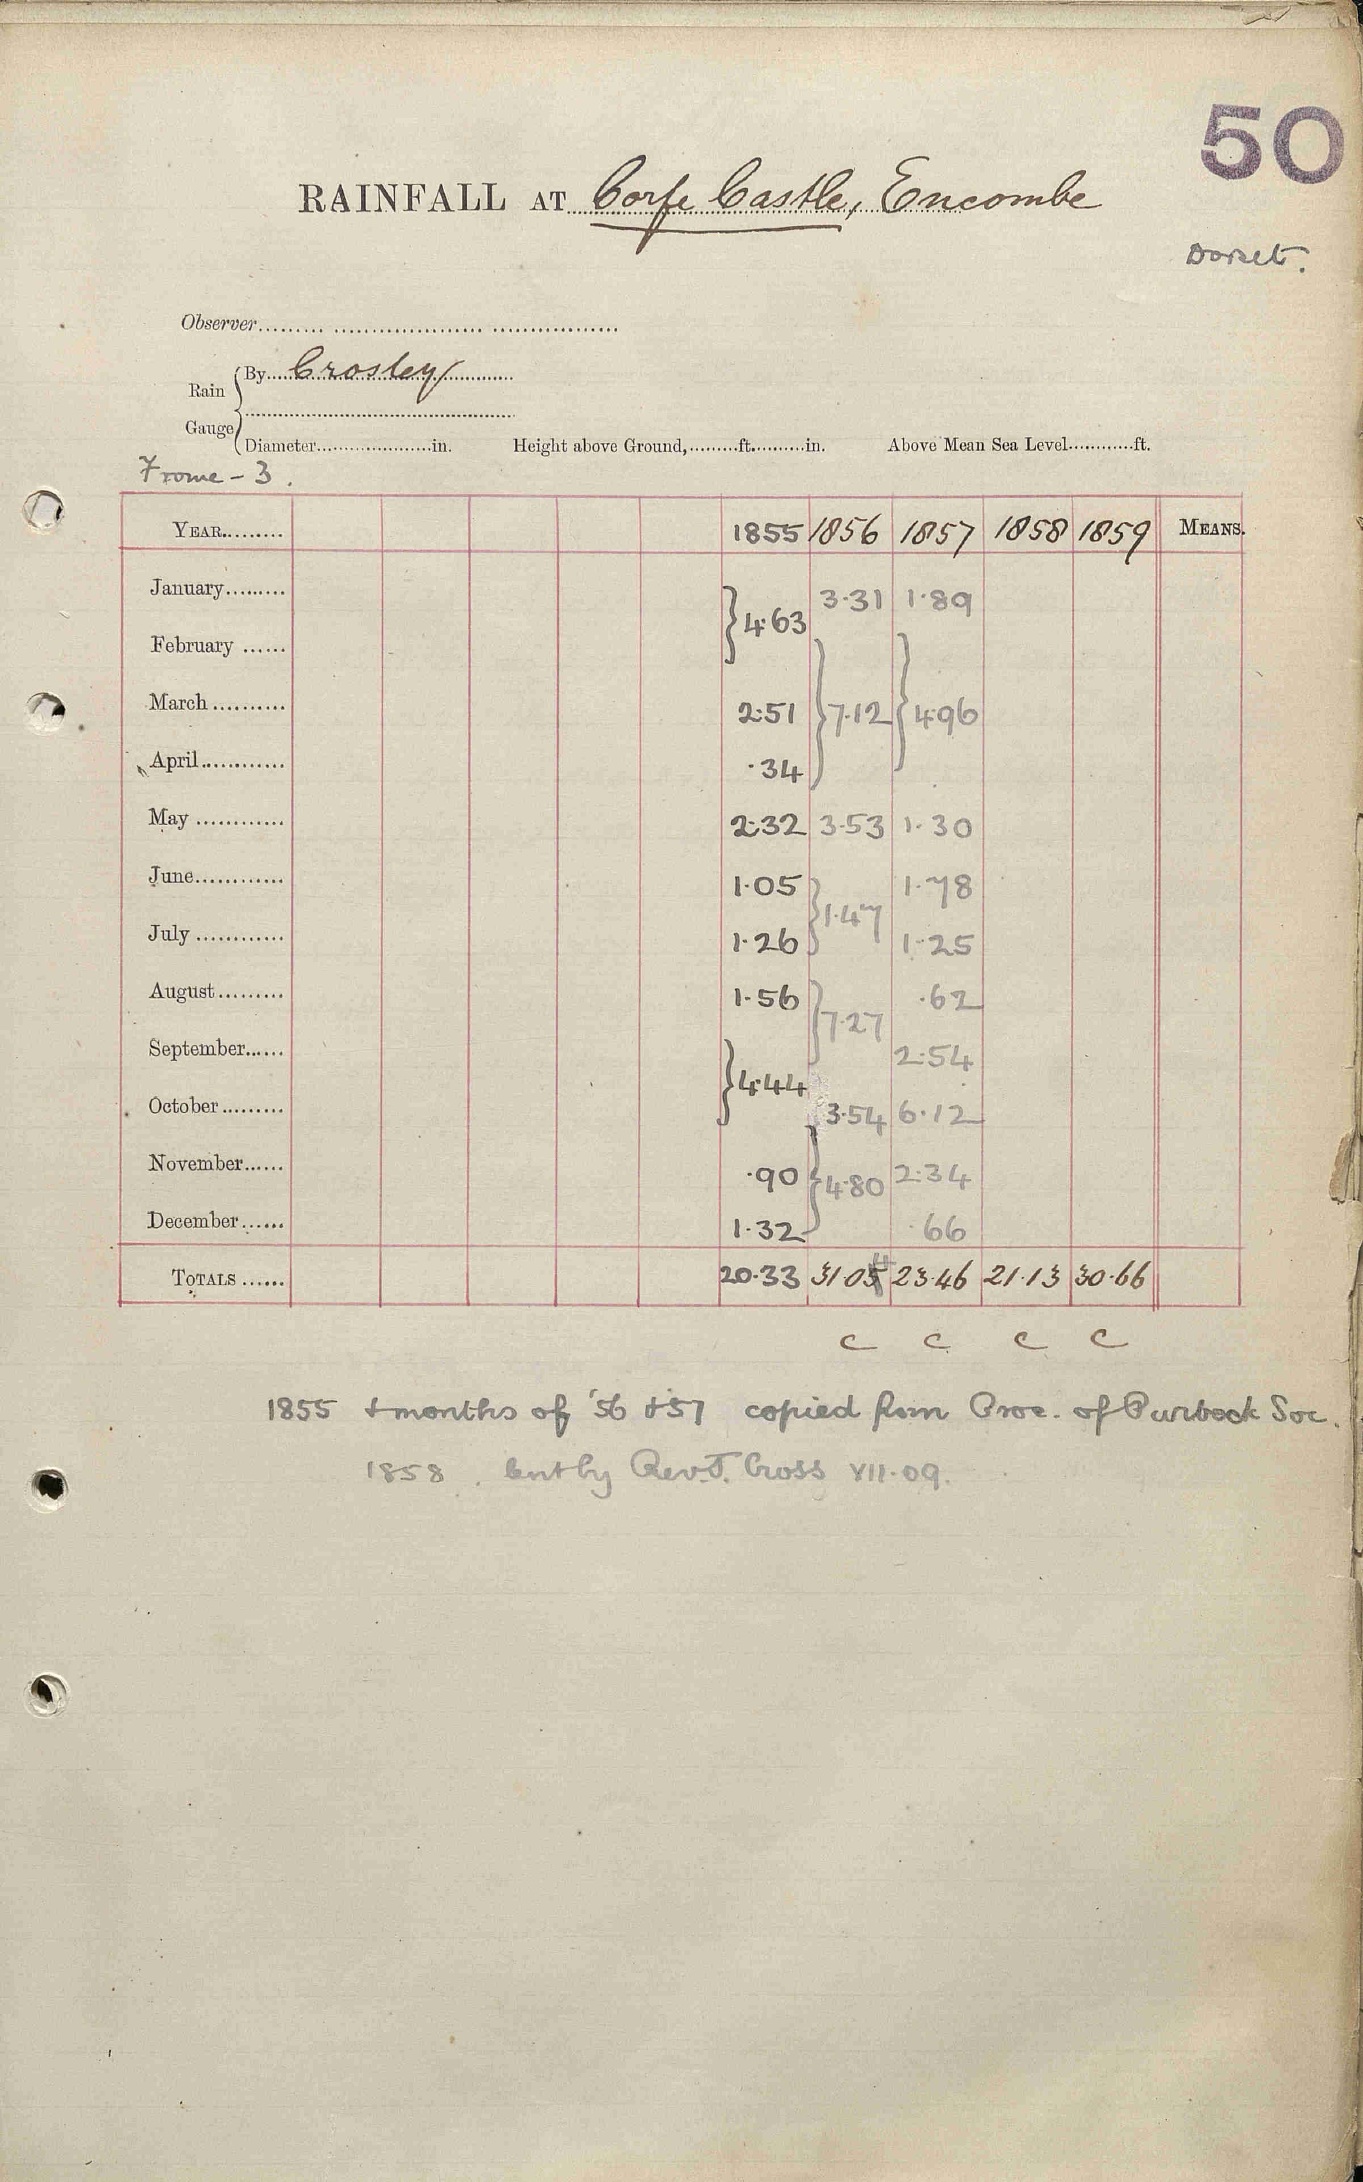 50
RAINFALL AT Corfe Castle, Encombe
Dorset.
Observer
Rain Gauge { By Crosley
Diameter in. Height above Ground, ft. in. Above Mean Sea Level ft.
Frome - 3.
YEAR 1855 1856 1857 1858 1859 MEANS.
January } 4.63 3.31 1.89
February
March 2.51 } 7.12 } 4.96
April .34
May 2.32 3.53 1.30
June 1.05 } 1.47 1.78
July 1.26 1.25
August 1.56 } 7.27 .62
September } 4.44 2.54
October 3.54 6.12
November .90 } 4.80 2.34
December 1.32 .66
TOTALS 20.33 31.05 4 23.46 21.13 30.66
C C C C
1855 & months of '56 & 57 copied from Proc. of Purbeck Soc.
1858. lent by Rev. J. Cross VII.09.